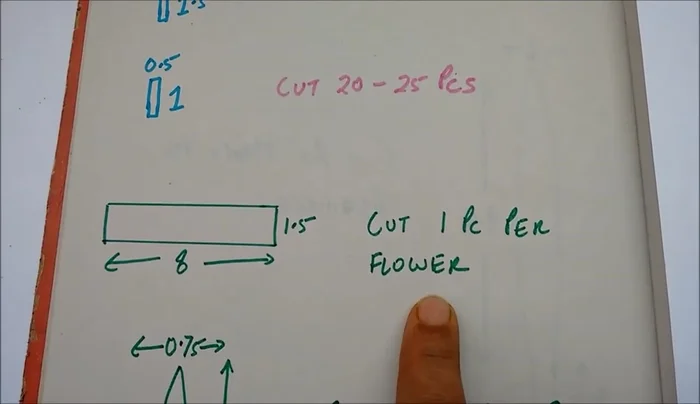 1.5
0.5
1
CUT 20 - 25 PCS
1.5
8
CUT 1 PC PER
FLOWER
0.75